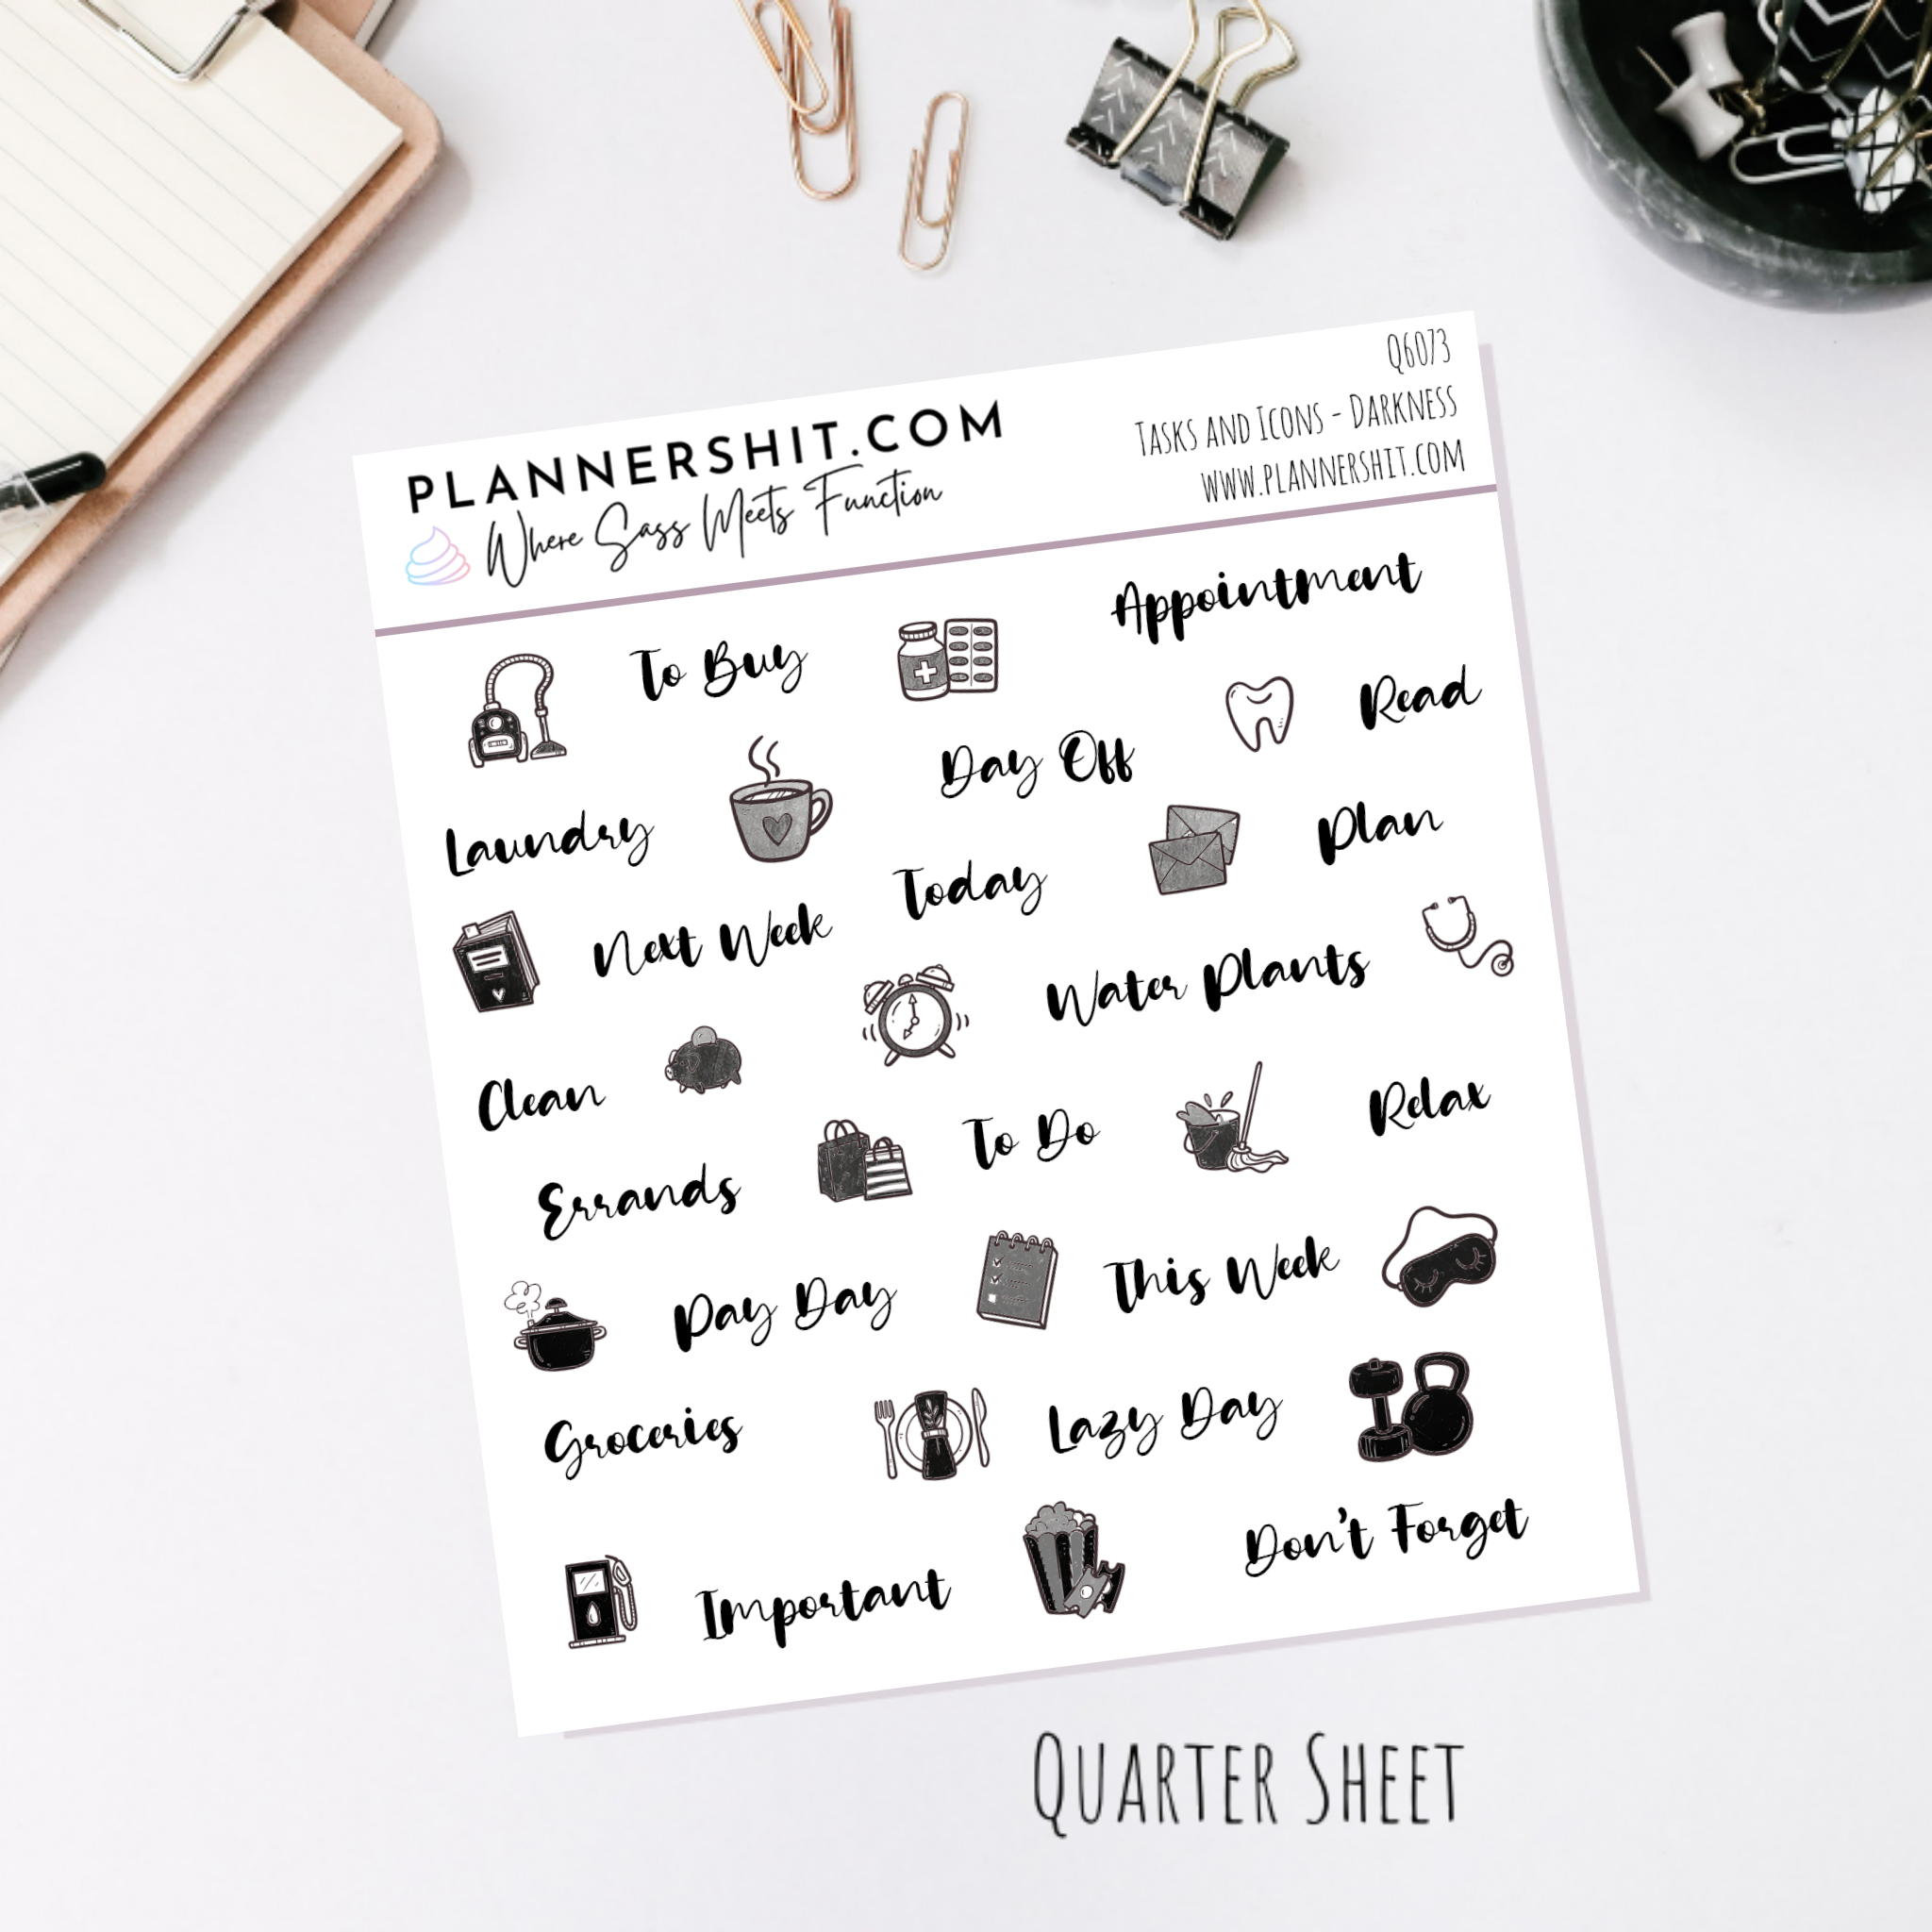 PLANNERSHIT.COM
Where Sass Meets Function
Q6073
Tasks and Icons - Darkness
www.plannershit.com
To Buy
Appointment
Read
Day Off
Laundry
Plan
Today
Next Week
Water Plants
Clean
To Do
Relax
Errands
This Week
Pay Day
Lazy Day
Groceries
Don't Forget
Important
Quarter Sheet